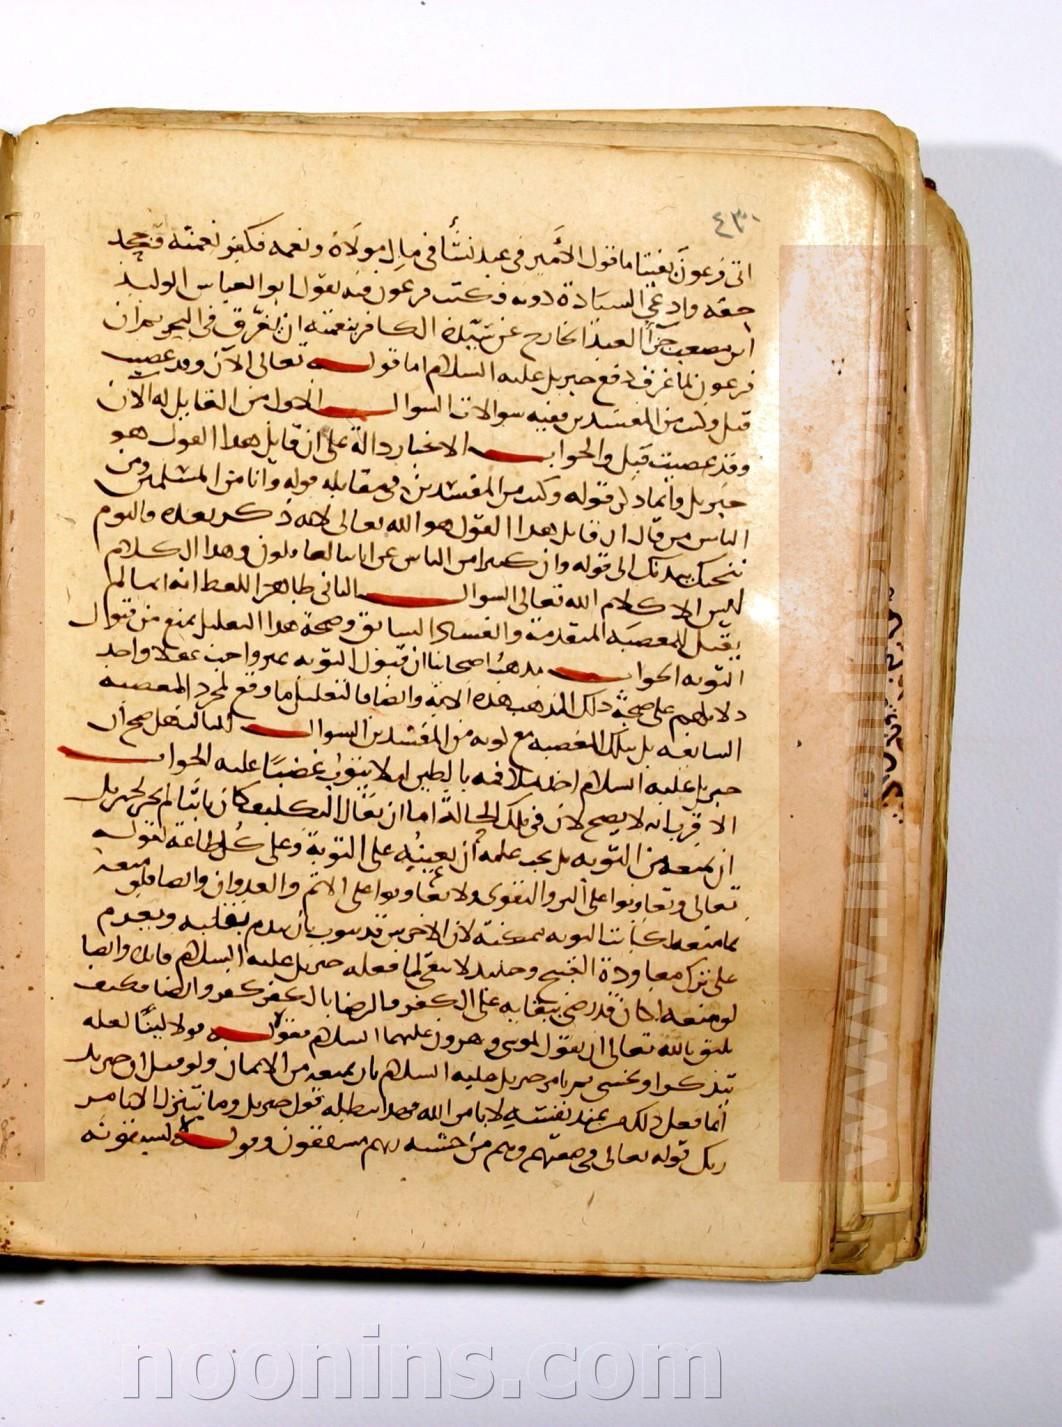 ٤٣٠
اتى فرعون بفتيا ما قول الأمير في عبد نشأ في مال مولاه ونعمه فكفر نعمته وجحد
حقه وادعى السيادة دونه فكتب فرعون فيه يقول ابو العباس الوليد
ابن مصعب جزآ العبد الخارج عن سيده الكافر بنعمته ان يغرق في البحر ثم ان
فرعون لما غرق دفع جبريل عليه السلام اما قوله تعالى الآن وقد عصيت
قبل وكنت من المفسدين ففيه سوالات السوال الاول من القايل له الآن
وقد عصيت قبل والجواب الاخبار دالة على ان قايل هذا القول هو
جبريل وانما ذكر قوله وكنت من المفسدين في مقابله قوله وانا من المسلمين ومن
الناس من قال ان قايل هذا القول هو الله تعالى لانه ذكر بعده فاليوم
ننجيك ببدنك الى قوله وان كثيرا من الناس عن اياتنا لغافلون وهذا الكلام
ليس الا كلام الله تعالى السوال الثاني ظاهر اللفظ انه انما لم
يقبل للمعصيه المتقدمة والفساد السابق وصحة هذا التعليل يمنع من قبول
التوبه الجواب مذهب اصحابنا ان قبول التوبه غير واجب عقلا واحد
دلايلهم على صحة ذلك المذهب هذه الاية وايضا فالتعليل ما وقع لمجرد المعصيه
السابقه بل بتلك المعصيه مع كونه من المفسدين السوال الثالث هل صح ان
جبريل عليه السلام اخذ يملا فمه بالطين ليلا يتوب غضبا عليه الجواب
الاقرب انه لا يصح لان في تلك الحالة اما ان يقال التكليف كان ثابتا لم يجز لجبريل
ان يمنعه من التوبه بل يجب عليه ان يعينه على التوبة وعلى كل طاعة لقوله
تعالى وتعاونوا على البر والتقوى ولا تعاونوا على الاثم والعدوان وايضا فلو منعه
بما منعه لكانت التوبه ممكنة لان الاخرس قد يتوب بان يندم بقلبه ويعزم
على ترك معاودة القبيح وحينئذ لا يبقى لما فعله جبريل عليه السلام فايده وايضا
لو منعه لكان قد رضي ببقايه على الكفر والرضا بالكفر كفر وايضا فكيف
يليق بالله تعالى ان يقول لموسى وهرون عليهما السلام فقولا له قولا لينا لعله
يتذكر او يخشى ثم يامر جبريل عليه السلام بان يمنعه من الايمان ولو قيل ان جبريل
انما فعل ذلك من عند نفسه لا بامر الله فهذا يبطله قول جبريل وما نتنزل الا بامر
ربك قوله تعالى في صفتهم وهم من خشيته مشفقون وقوله لا يسبقونه
www.noonins.com
noonins.com